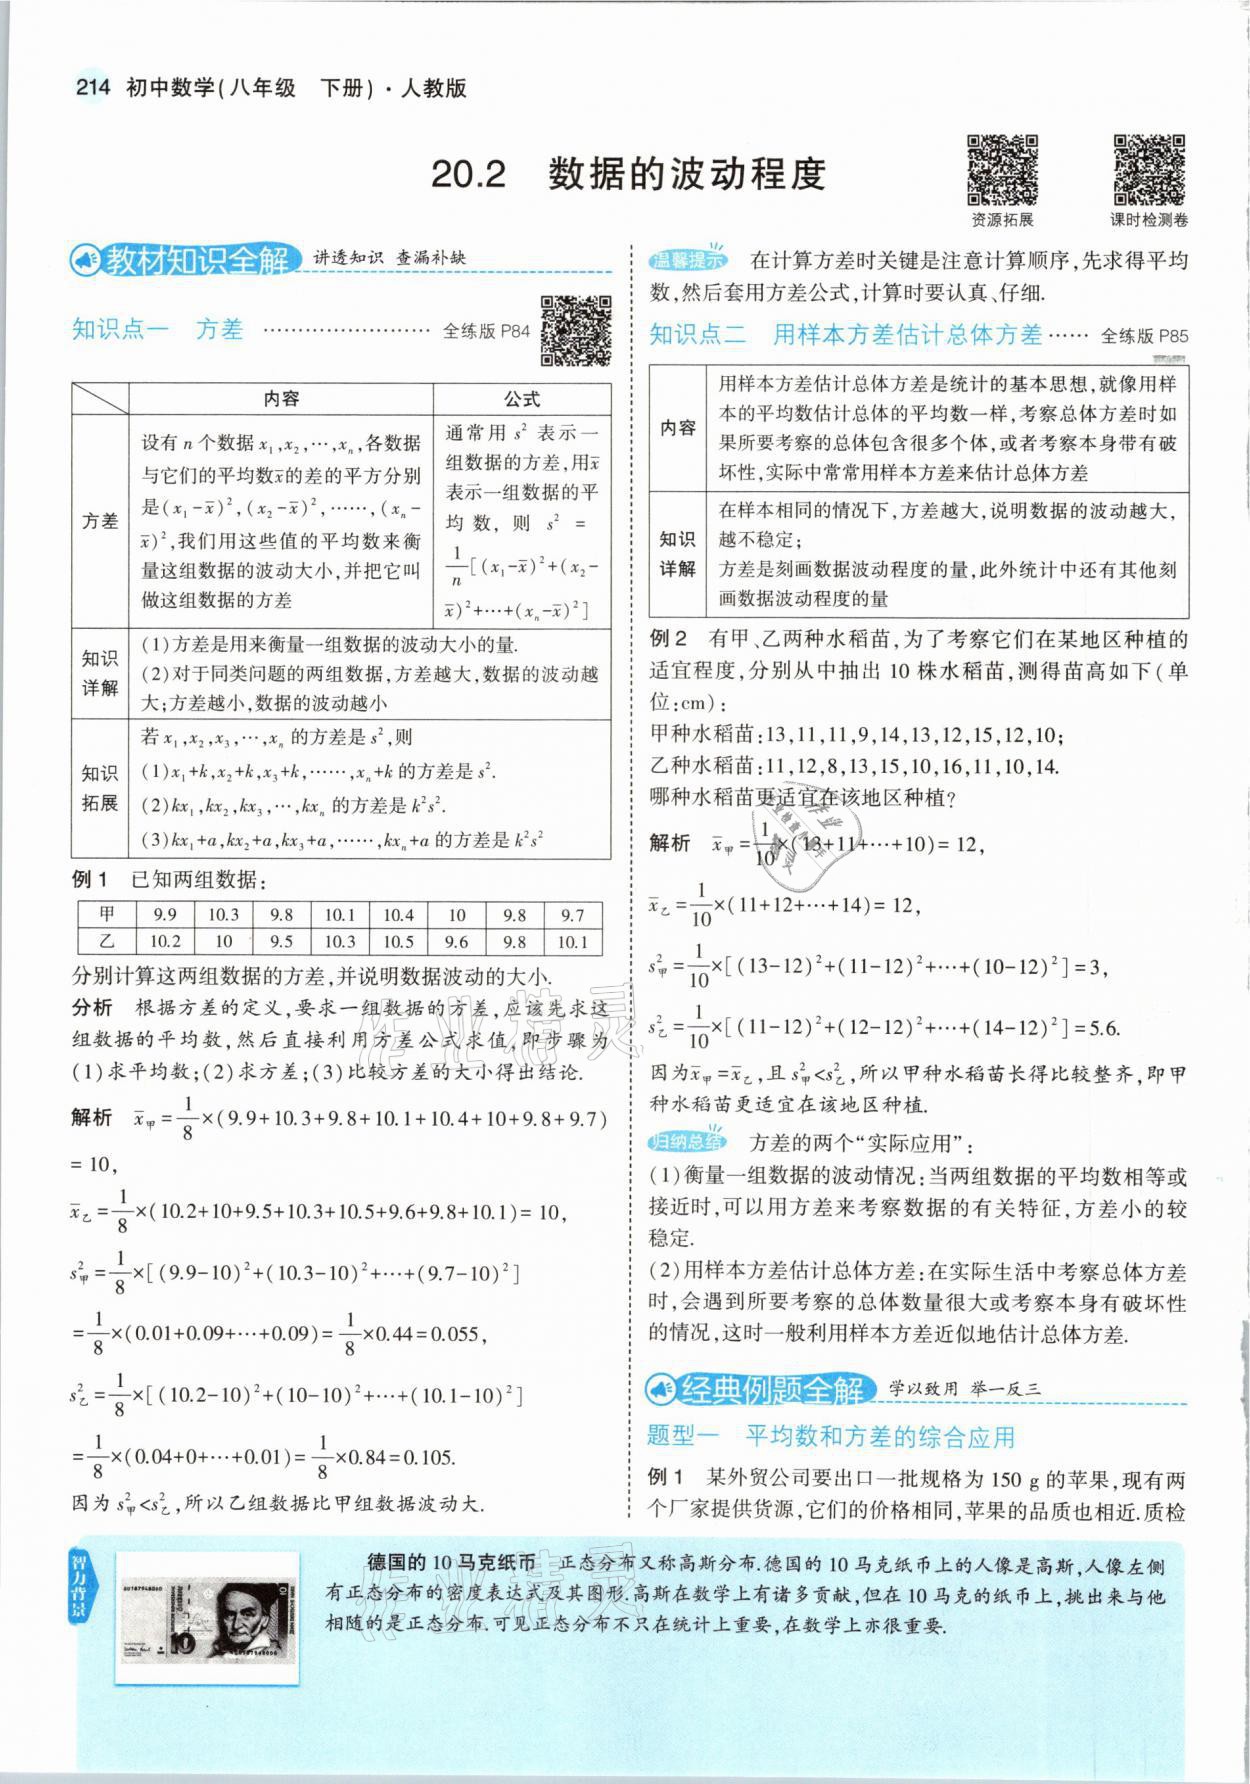 214 初中数学(八年级 下册)·人教版
20.2 数据的波动程度
资源拓展
课时检测卷
教材知识全解 讲透知识 查漏补缺
知识点一 方差 …………………… 全练版 P84
内容 公式
方差
设有 n 个数据 x₁,x₂,…,xₙ,各数据
与它们的平均数x̄的差的平方分别
是(x₁-x̄)²,(x₂-x̄)²,……,(xₙ-
x̄)²,我们用这些值的平均数来衡
量这组数据的波动大小,并把它叫
做这组数据的方差
通常用 s² 表示一
组数据的方差,用x̄
表示一组数据的平
均数, 则 s² =
1/n[(x₁-x̄)²+(x₂-
x̄)²+…+(xₙ-x̄)²]
知识
详解
(1)方差是用来衡量一组数据的波动大小的量.
(2)对于同类问题的两组数据,方差越大,数据的波动越
大;方差越小,数据的波动越小
知识
拓展
若 x₁,x₂,x₃,…,xₙ 的方差是 s²,则
(1)x₁+k,x₂+k,x₃+k,……,xₙ+k 的方差是 s².
(2)kx₁,kx₂,kx₃,…,kxₙ 的方差是 k²s².
(3)kx₁+a,kx₂+a,kx₃+a,……,kxₙ+a 的方差是 k²s²
例 1 已知两组数据:
甲 9.9 10.3 9.8 10.1 10.4 10 9.8 9.7
乙 10.2 10 9.5 10.3 10.5 9.6 9.8 10.1
分别计算这两组数据的方差,并说明数据波动的大小.
分析 根据方差的定义,要求一组数据的方差,应该先求这
组数据的平均数,然后直接利用方差公式求值,即步骤为
(1)求平均数;(2)求方差;(3)比较方差的大小得出结论.
解析 x̄甲=1/8×(9.9+10.3+9.8+10.1+10.4+10+9.8+9.7)
=10,
x̄乙=1/8×(10.2+10+9.5+10.3+10.5+9.6+9.8+10.1)=10,
s²甲=1/8×[(9.9-10)²+(10.3-10)²+…+(9.7-10)²]
=1/8×(0.01+0.09+…+0.09)=1/8×0.44=0.055,
s²乙=1/8×[(10.2-10)²+(10-10)²+…+(10.1-10)²]
=1/8×(0.04+0+…+0.01)=1/8×0.84=0.105.
因为 s²甲<s²乙,所以乙组数据比甲组数据波动大.
温馨提示 在计算方差时关键是注意计算顺序,先求得平均
数,然后套用方差公式,计算时要认真、仔细.
知识点二 用样本方差估计总体方差 …… 全练版 P85
内容
用样本方差估计总体方差是统计的基本思想,就像用样
本的平均数估计总体的平均数一样,考察总体方差时如
果所要考察的总体包含很多个体,或者考察本身带有破
坏性,实际中常常用样本方差来估计总体方差
知识
详解
在样本相同的情况下,方差越大,说明数据的波动越大,
越不稳定;
方差是刻画数据波动程度的量,此外统计中还有其他刻
画数据波动程度的量
例 2 有甲、乙两种水稻苗,为了考察它们在某地区种植的
适宜程度,分别从中抽出 10 株水稻苗,测得苗高如下(单
位:cm):
甲种水稻苗:13,11,11,9,14,13,12,15,12,10;
乙种水稻苗:11,12,8,13,15,10,16,11,10,14.
哪种水稻苗更适宜在该地区种植?
解析 x̄甲=1/10×(13+11+…+10)=12,
x̄乙=1/10×(11+12+…+14)=12,
s²甲=1/10×[(13-12)²+(11-12)²+…+(10-12)²]=3,
s²乙=1/10×[(11-12)²+(12-12)²+…+(14-12)²]=5.6.
因为x̄甲=x̄乙,且 s²甲<s²乙,所以甲种水稻苗长得比较整齐,即甲
种水稻苗更适宜在该地区种植.
归纳总结 方差的两个“实际应用”:
(1)衡量一组数据的波动情况:当两组数据的平均数相等或
接近时,可以用方差来考察数据的有关特征,方差小的较
稳定.
(2)用样本方差估计总体方差:在实际生活中考察总体方差
时,会遇到所要考察的总体数量很大或考察本身有破坏性
的情况,这时一般利用样本方差近似地估计总体方差.
经典例题全解 学以致用 举一反三
题型一 平均数和方差的综合应用
例 1 某外贸公司要出口一批规格为 150 g 的苹果,现有两
个厂家提供货源,它们的价格相同,苹果的品质也相近.质检
智力背景
德国的 10 马克纸币 正态分布又称高斯分布.德国的 10 马克纸币上的人像是高斯,人像左侧
有正态分布的密度表达式及其图形.高斯在数学上有诸多贡献,但在 10 马克的纸币上,挑出来与他
相随的是正态分布.可见正态分布不只在统计上重要,在数学上亦很重要.
作业精灵
作业精灵